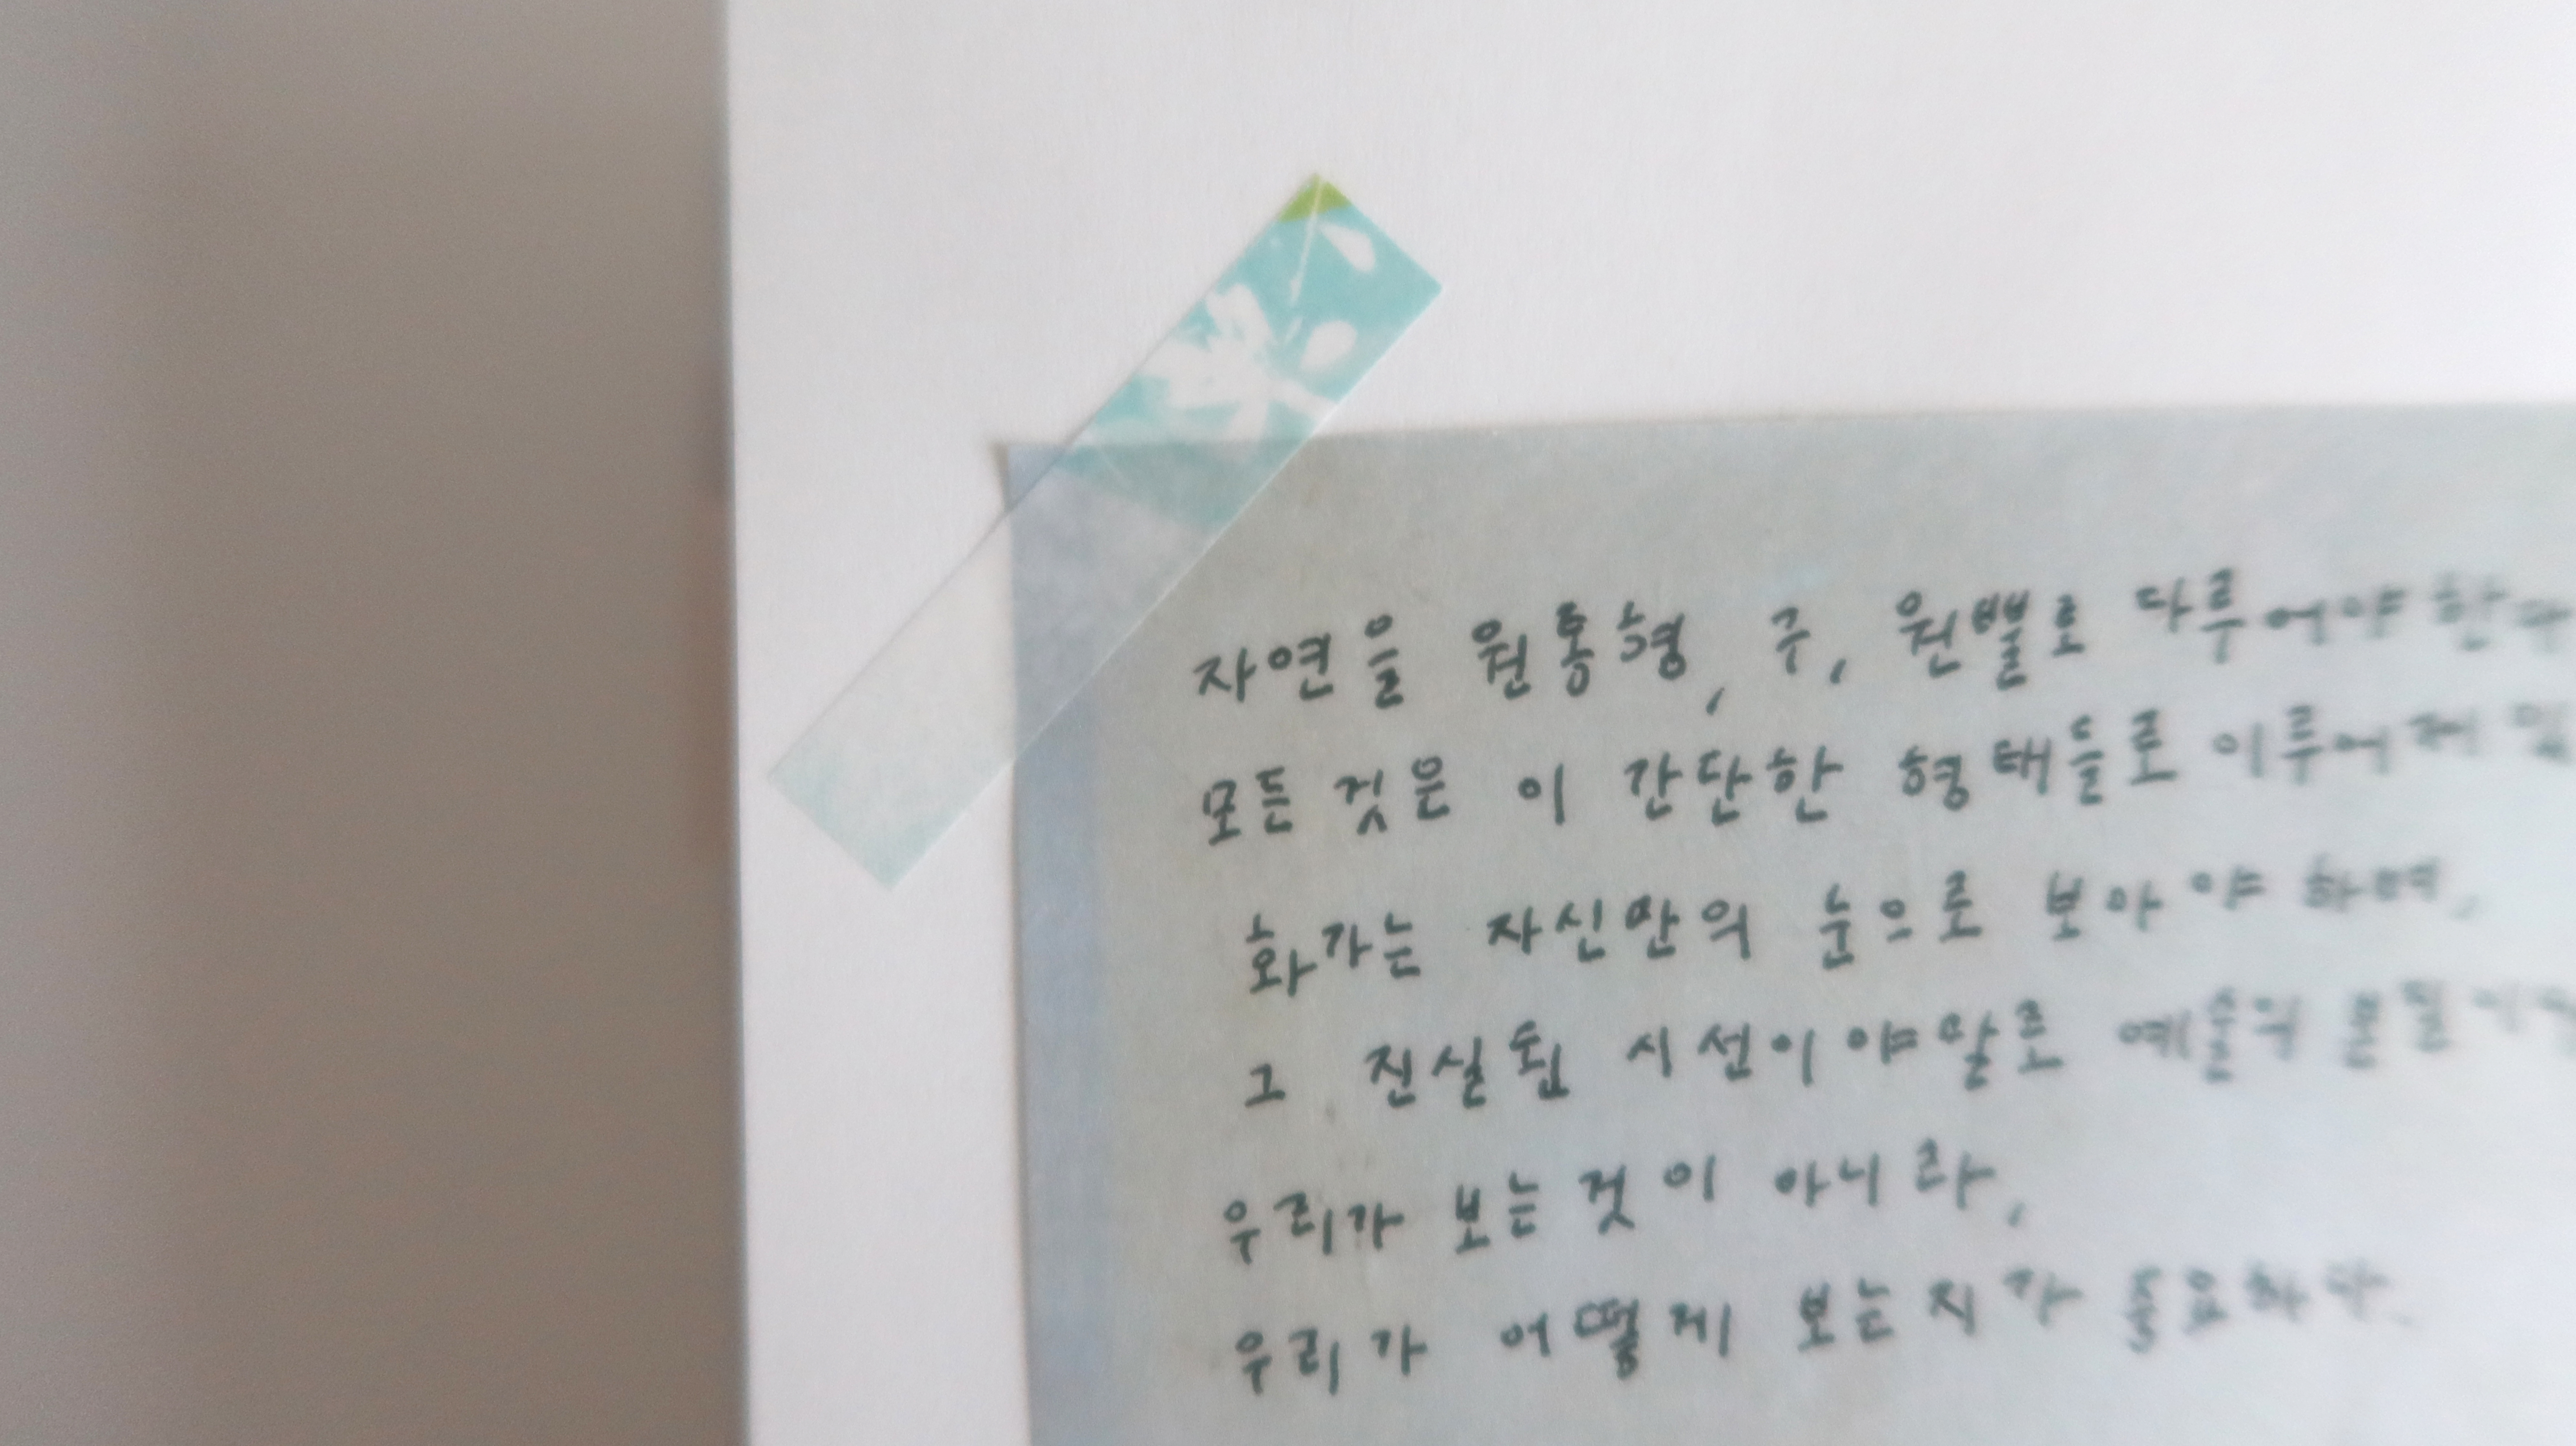 자연을 원통형, 구, 원뿔로 다루어야 한다
모든 것은 이 간단한 형태들로 이루어져
화가는 자신만의 눈으로 보아야 하며,
그 진실된 시선이야말로 예술의 본질이
우리가 보는 것이 아니라,
우리가 어떻게 보는지가 중요하다.